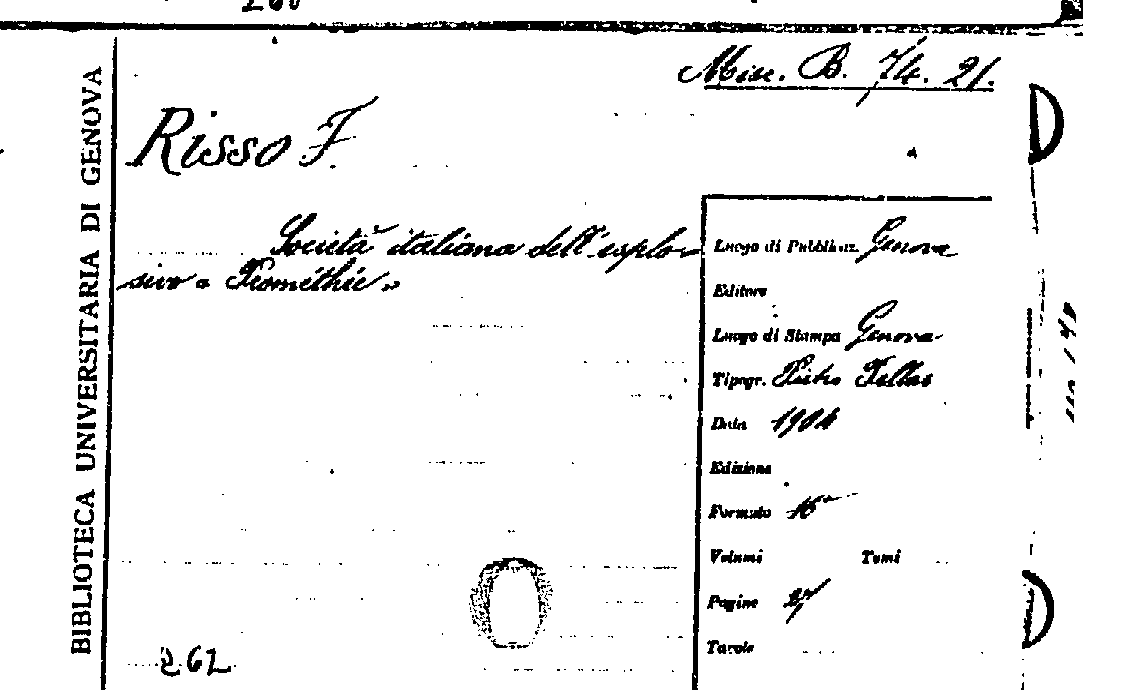 260
Misc. B. 74. 21.
BIBLIOTECA UNIVERSITARIA DI GENOVA
Risso F.
Società italiana dell'esplo-
sivo « Prométhée »
Luogo di Pubblicaz. Genova
Editore
Luogo di Stampa Genova
Tipogr. Pietro Pellas
Data 1904
Edizione
Formato 16°
Volumi Tomi
Pagine 27
Tavole
262